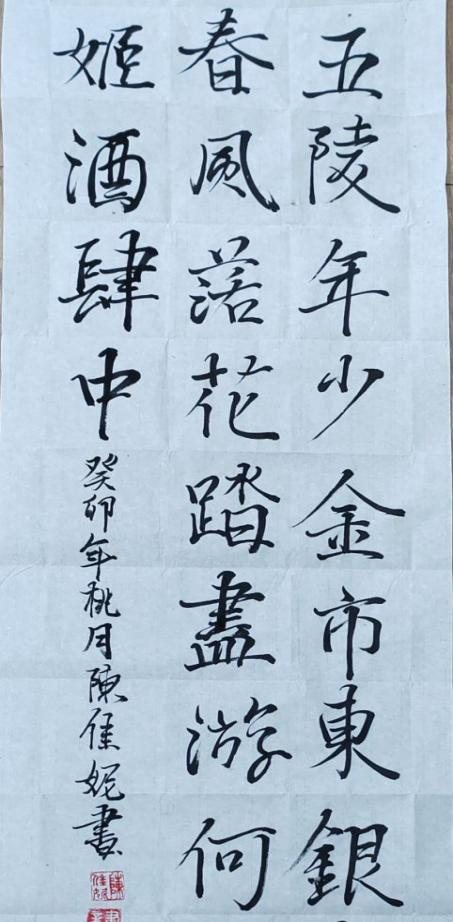 五陵年少金市東銀
春風落花踏盡游何
姬酒肆中
癸卯年桃月陳佳妮書